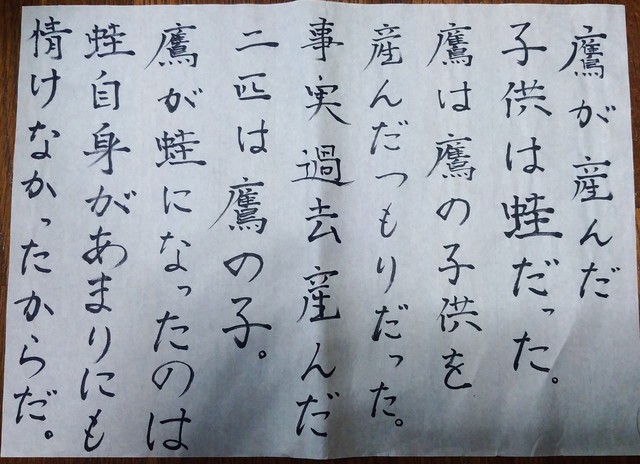 鷹が産んだ
子供は蛙だった。
鷹は鷹の子供を
産んだつもりだった。
事実過去産んだ
二匹は鷹の子。
鷹が蛙になったのは
蛙自身があまりにも
情けなかったからだ。